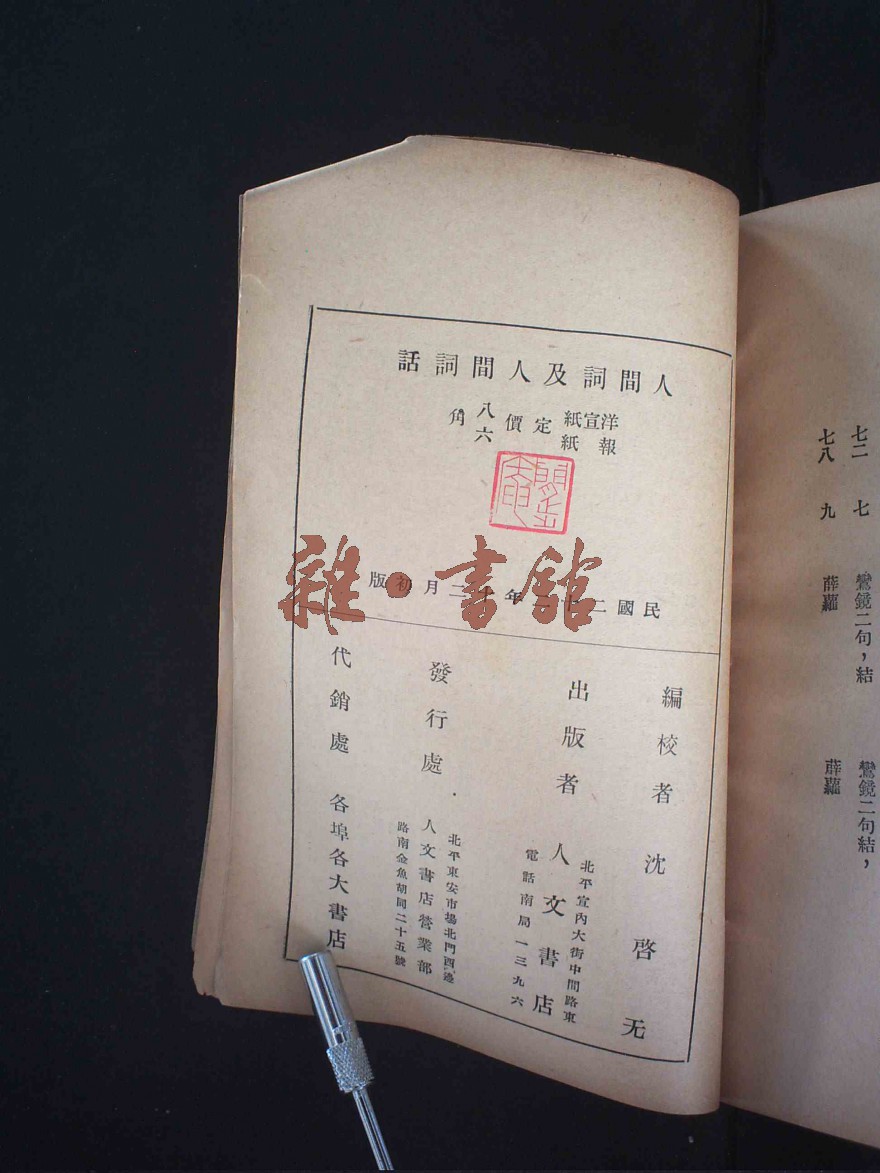 人間詞及人間詞話
洋宣紙定價八角
報紙六
民國二十年十二月初版
編校者 沈啓无
出版者 人文書店
北平宣內大街中間路東
電話南局一三九六
發行處 人文書店營業部
北平東安市場北門西邊
路南金魚胡同二十五號
代銷處 各埠各大書店
雜·書館
七二 七 鸞鏡二句，結 鸞鏡二句結，
七八 九 薛蘿 薜蘿